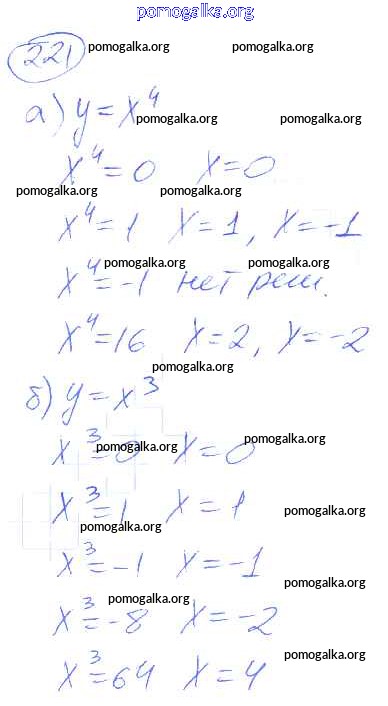 pomogalka.org
221 pomogalka.org pomogalka.org
а) y = x⁴
pomogalka.org pomogalka.org
x⁴ = 0 x = 0
pomogalka.org pomogalka.org
x⁴ = 1 x = 1, x = -1
pomogalka.org pomogalka.org
x⁴ = -1 нет реш.
x⁴ = 16 x = 2, x = -2
pomogalka.org
б) y = x³
x³ = 0 x = 0
pomogalka.org pomogalka.org
x³ = 1 x = 1
pomogalka.org
pomogalka.org
x³ = -1 x = -1
pomogalka.org
pomogalka.org
x³ = -8 x = -2
pomogalka.org
x³ = 64 x = 4